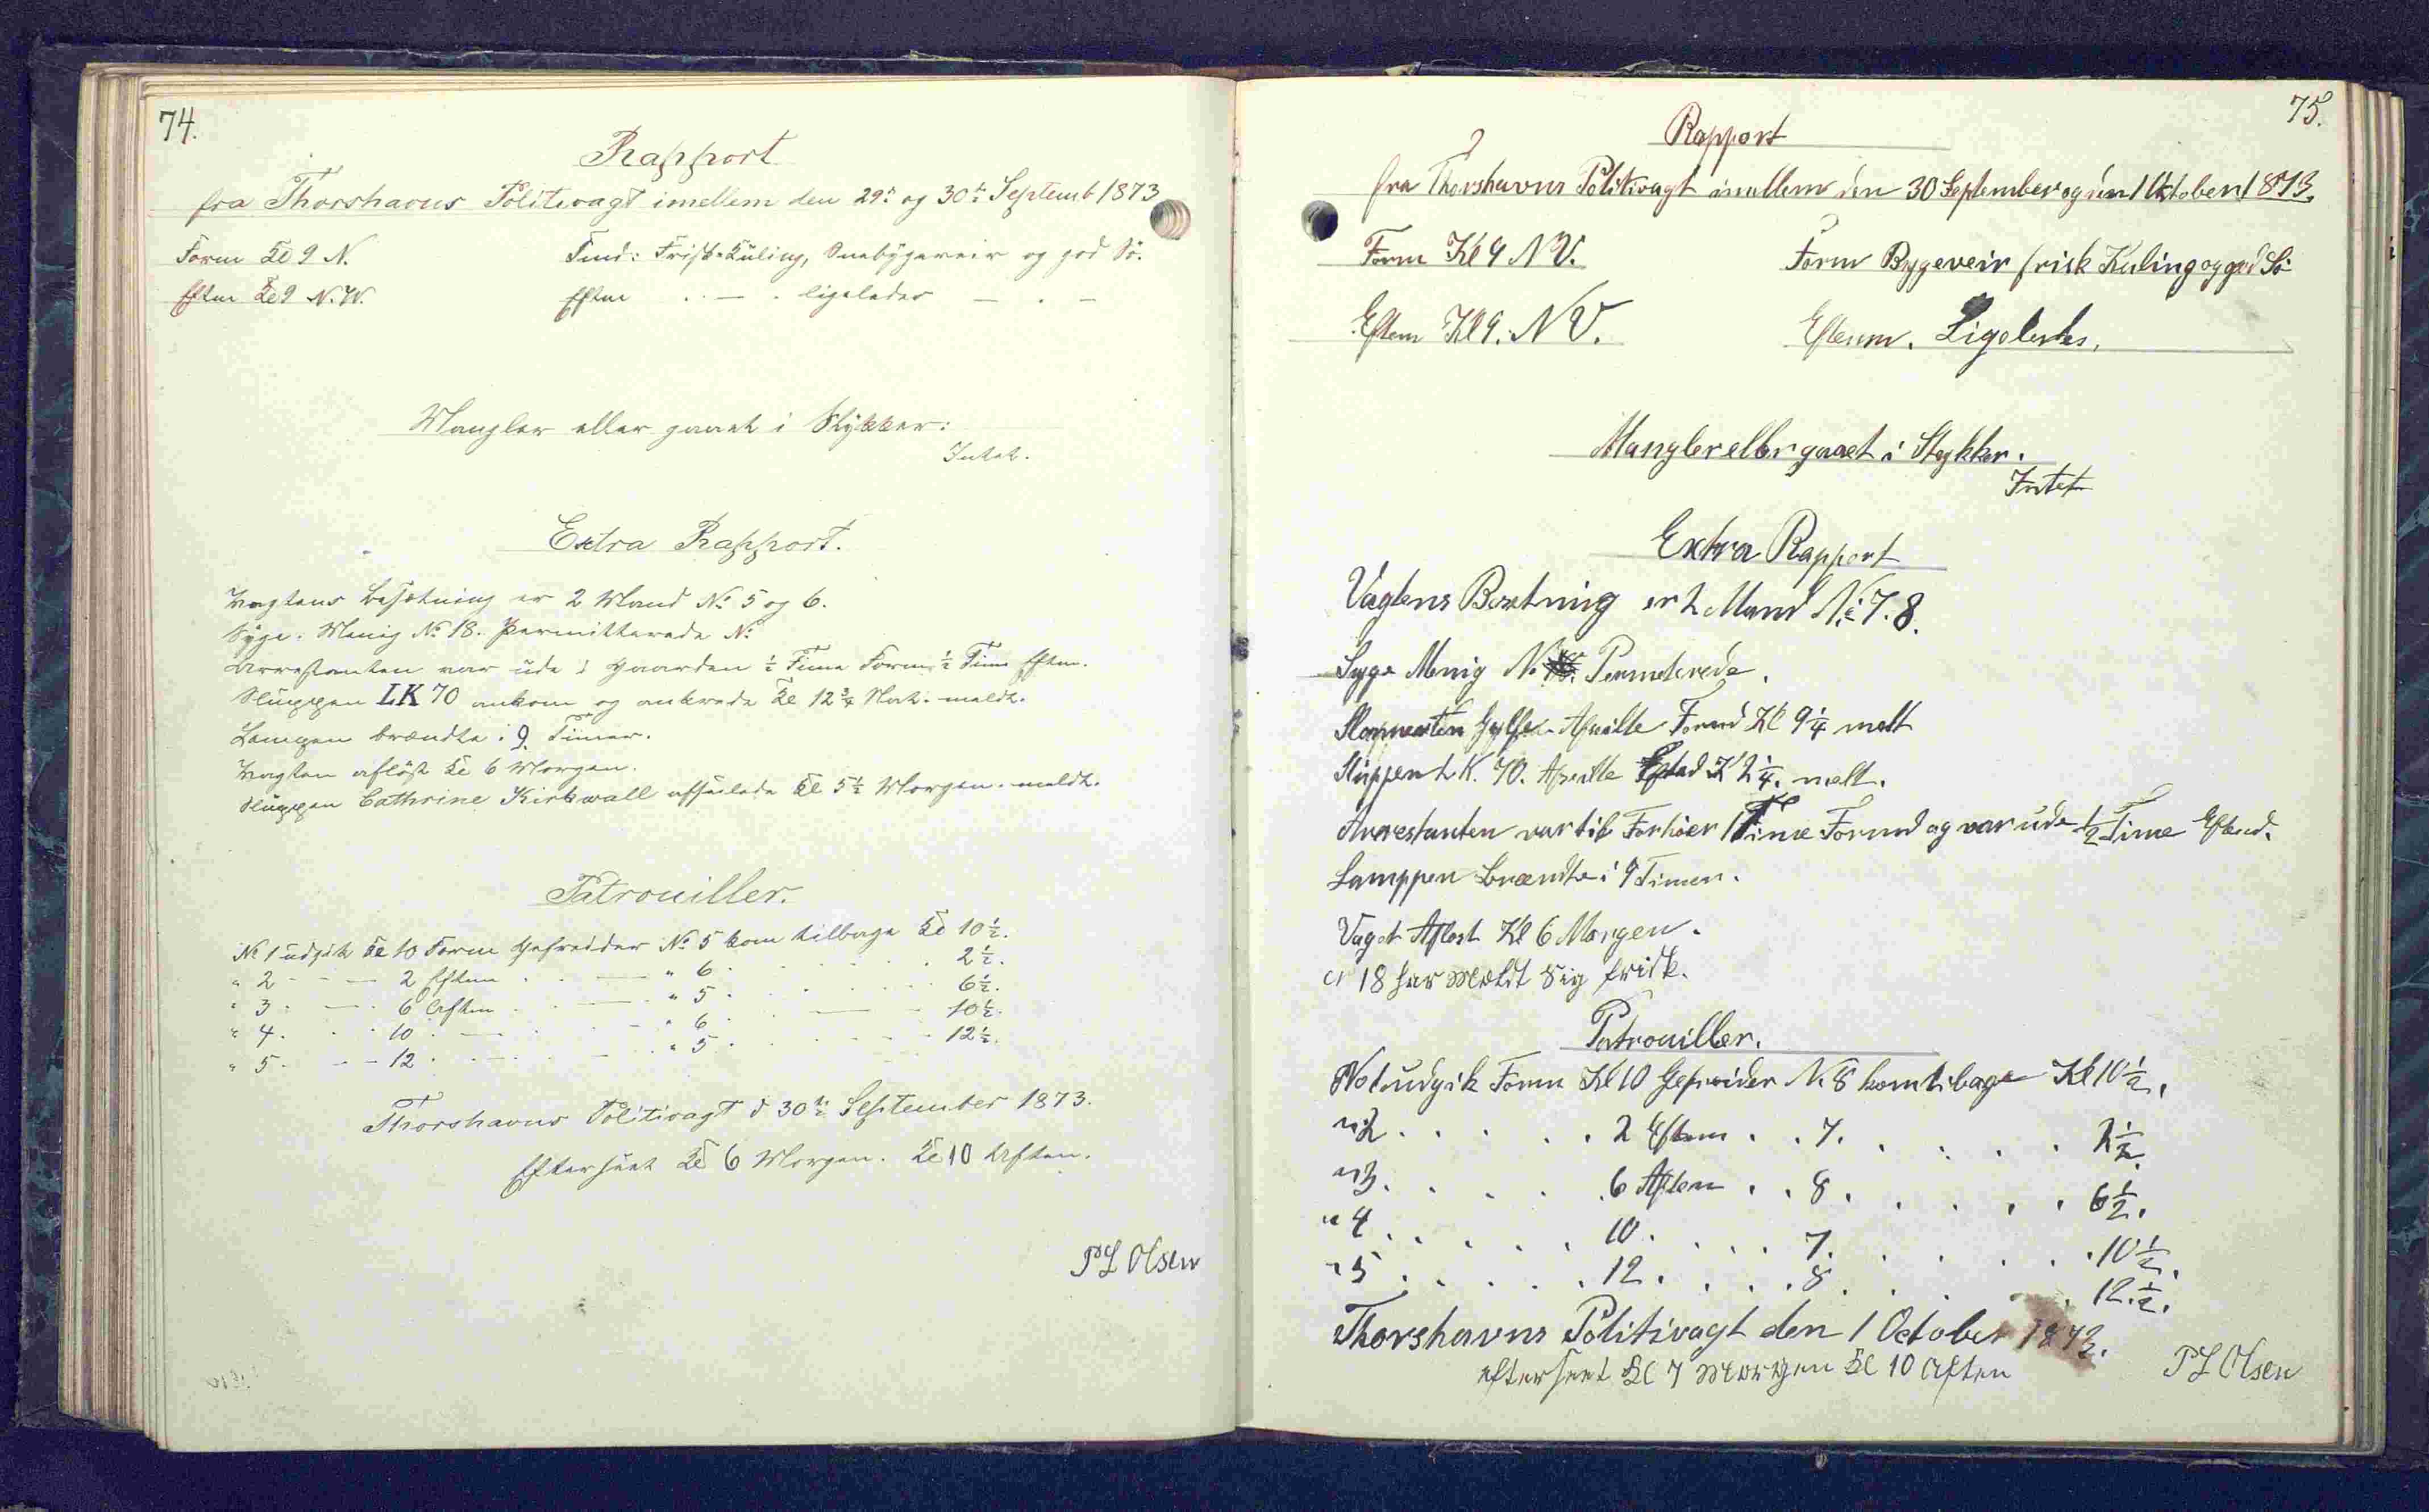 74.
Rapport
fra Thorshavns Politivagt imellem den 29de og 30te Septemb 1873
Form Kl 9 N. Fmd: Frisk Kuling, Snebygeveir og god Sö.
Eftm Kl 9 N.W. Eftm . — . ligeledes — . —
Mangler eller gaaet i Stykker:
Intet.
Extra Rapport.
Vagtens Besætning er 2 Mand No 5 og 6.
Syge. Menig No 18. Permitterede No
Arrestanten var ude i Gaarden ½ Time Form. ½ Time Eftm.
Sluppen LK 70 ankom og ankrede Kl 12¾ Nat. meldt.
Lampen brændte i 9 Timer.
Vagten aflöst Kl 6 Morgen.
Sluppen Cathrine Kirkwall afseilede Kl 5½ Morgen. meldt.
Patrouiller.
No 1 udgik Kl 10 Form Gefreider No 5 kom tilbage Kl 10½.
" 2 - - — 2 Eftm . . — " 6 . . . . . 2½.
" 3 . — . 6 Aften . . — . " 5 . . . . . 6½.
" 4 . . . 10 . — . . - " 6 . . — - 10½.
" 5 . - — 12 . . — . . - . " 5 . . . - - 12½.
Thorshavns Politivagt d 30te September 1873.
Efterseet Kl 6 Morgen. Kl 10 Aften.
PL Olsen
75.
Rapport
fra Thorshavns Politivagt imellem den 30 September og den 1 Oktober 1873.
Form Kl 9 NV. Form Bygeveir frisk Kuling og god Sö
Eftem Kl 9. NV. Efterm. Ligeledes.
Mangler eller gaaet i Stykker.
Intet
Extra Rapport
Vagtens Besetning er 2 Mand No 7. 8.
Syge Menig N. Permeterede.
Afseilte Formd Kl 9¼ melt
Sluppen L K. 70. Afseilte Eftmd K 2¼. melt.
Arrestanten var til Forhöer 1 Time Formd og var ude ½ Time Eftmd.
Lamppen Brændte i 9 Timer.
Vagt Aflöst Kl 6 Morgen.
N 18 har Mældt Sig frisk.
Patrouiller.
No 1 udgik Form Kl 10 Gefreider N. 8 kom tibage Kl 10½.
" 2 . . . . . 2 Eftem . . 7. . . . . 2½.
" 3 . . . . . 6 Aften . . 8. . . . . 6½.
" 4 . . . . . 10 . . . . 7. . . . . 10½.
" 5 . . . . . 12 . . . . 8. . . . . 12½.
Thorshavns Politivagt den 1 October 1873.
efterseet Kl 7 Morgen Kl 10 Aften
PL Olsen